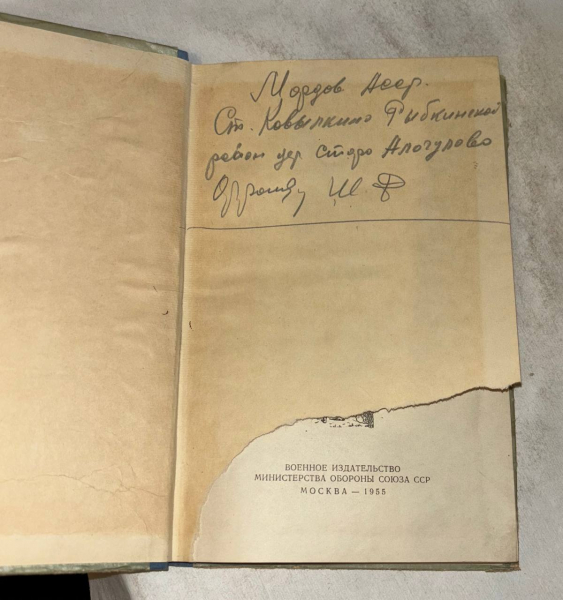 Мордов Асср.
Ст. Ковылкино Рыбкинский
район дер Старо
Ш. Ф
ВОЕННОЕ ИЗДАТЕЛЬСТВО
МИНИСТЕРСТВА ОБОРОНЫ СОЮЗА ССР
МОСКВА — 1955